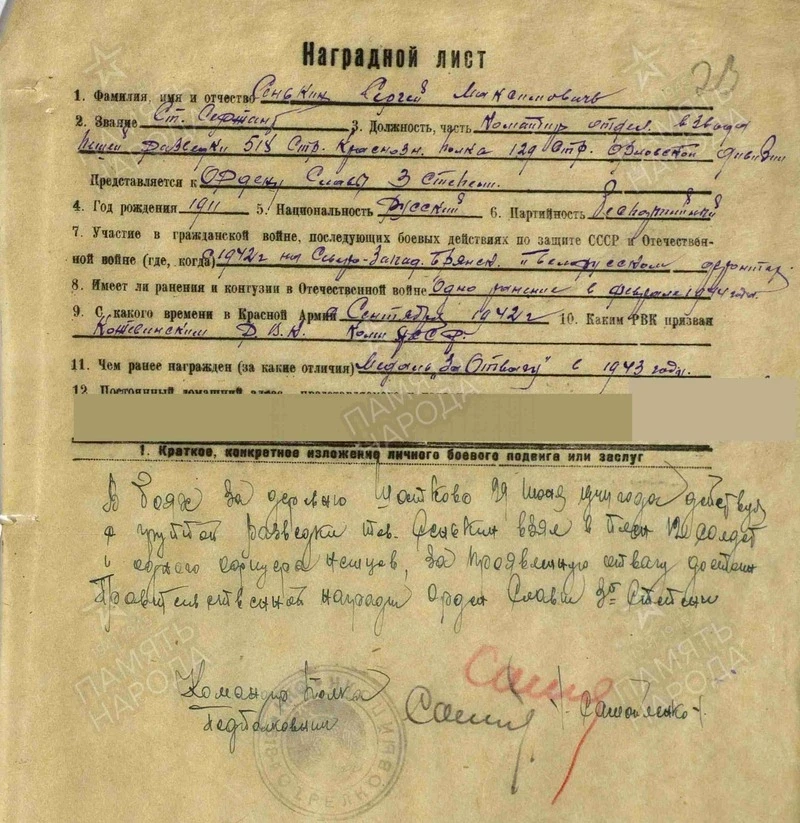 Наградной лист
23
1. Фамилия, имя и отчество Сенькин Сергей Максимович
2. Звание Ст. Сержант 3. Должность, часть Командир отдел. взвода
пешей разведки 518 Стр. Краснозн. полка 129 Стр. Орловской дивизии
Представляется к Ордену Славы 3 степени.
4. Год рождения 1911 5. Национальность Русский 6. Партийность Беспартийный
7. Участие в гражданской войне, последующих боевых действиях по защите СССР и Отечествен-
ной войне (где, когда) с 1942 г на Северо-Запад. Брянск. и Белорусском фронтах.
8. Имеет ли ранения и контузии в Отечественной войне Одно ранение в феврале 1944 года.
9. С какого времени в Красной Армии с Сентября 1942 г 10. Каким РВК призван
Р.В.К. Коми АССР.
11. Чем ранее награжден (за какие отличия) Медаль "За Отвагу" в 1943 году.
12. Постоянный домашний адрес
1. Краткое, конкретное изложение личного боевого подвига или заслуг
В боях за деревню Шатково 29 июня 1944 года действуя
с группой разведки тов. Сенькин взял в плен 12 солдат
и одного офицера немцев, за проявленную отвагу достоин
Правительственной награды Орден Славы 3й Степени
Командир Полка
Подполковник /-Самойленко-/
ПАМЯТЬ НАРОДА
ПАМЯТЬ НАРОДА
ПАМЯТЬ НАРОДА